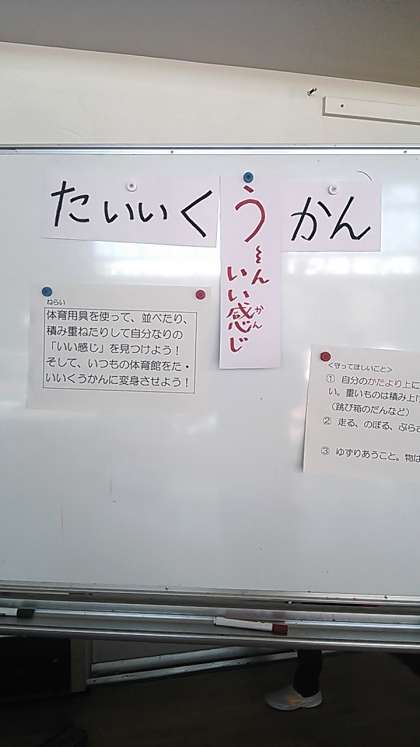 たいいく
う〜ん
いい感じ
かん
かん
ねらい
体育用具を使って、並べたり、
積み重ねたりして自分なりの
「いい感じ」を見つけよう！
そして、いつもの体育館をた・
いいくうかんに変身させよう！
＜守ってほしいこと＞
① 自分のかたより上に
い。重いものは積み上げ
（跳び箱のだんなど）
② 走る、のぼる、ぶらさ
③ ゆずりあうこと。物は